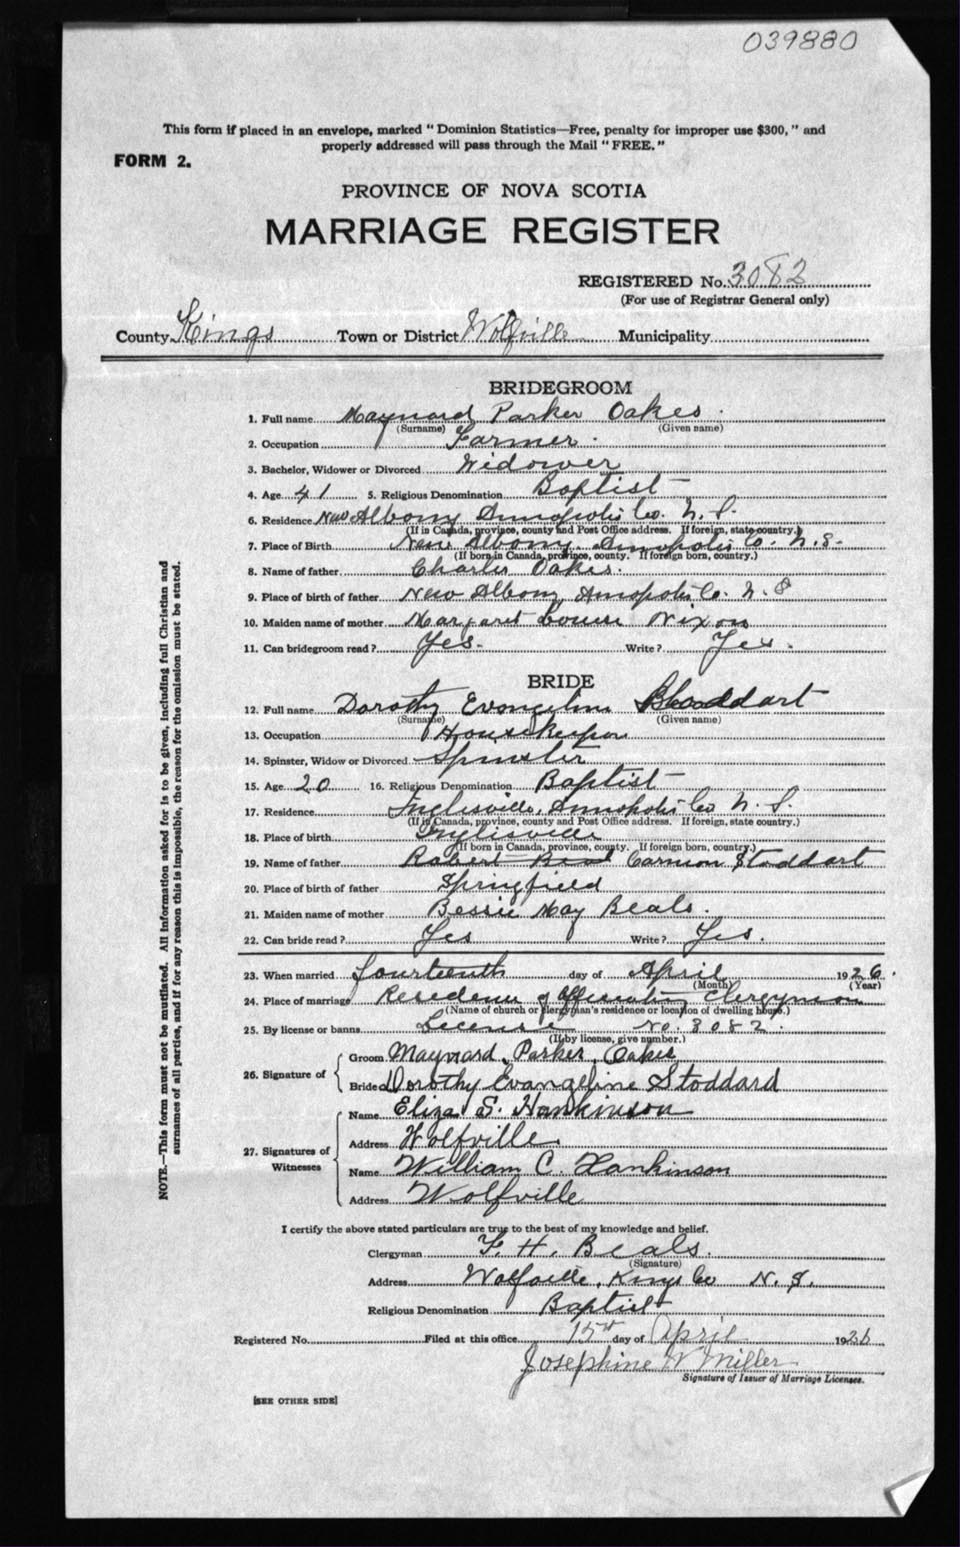 039880
This form if placed in an envelope, marked "Dominion Statistics—Free, penalty for improper use $300," and
properly addressed will pass through the Mail "FREE."
FORM 2.
PROVINCE OF NOVA SCOTIA
MARRIAGE REGISTER
REGISTERED No. 3082
(For use of Registrar General only)
County Kings Town or District Wolfville Municipality
BRIDEGROOM
1. Full name Maynard Parker Oakes.
(Surname) (Given name)
2. Occupation Farmer.
3. Bachelor, Widower or Divorced Widower
4. Age 41 5. Religious Denomination Baptist
6. Residence New Albany Annapolis Co. N. S.
(If in Canada, province, county and Post Office address. If foreign, state country.)
7. Place of Birth New Albany, Annapolis Co. N. S.
(If born in Canada, province, county. If foreign born, country.)
8. Name of father Charles Oakes.
9. Place of birth of father New Albany Annapolis Co. N. S
10. Maiden name of mother Margaret Louise Nixon
11. Can bridegroom read? Yes. Write? Yes.
BRIDE
12. Full name Dorothy Evangeline Stoddart
(Surname) (Given name)
13. Occupation Housekeeper
14. Spinster, Widow or Divorced Spinster
15. Age 20 16. Religious Denomination Baptist
17. Residence Inglisville, Annapolis Co N. S.
(If in Canada, province, county and Post Office address. If foreign, state country.)
18. Place of birth Inglisville
(If born in Canada, province, county. If foreign born, country.)
19. Name of father Robert Carmon Stoddart
20. Place of birth of father Springfield
21. Maiden name of mother Bessie May Beals.
22. Can bride read? Yes Write? Yes.
23. When married fourteenth day of April 1926.
(Month) (Year)
24. Place of marriage Residence of Officiating Clergyman
(Name of church or clergyman's residence or location of dwelling house.)
25. By license or banns License No. 3082.
(If by license, give number.)
26. Signature of
Groom Maynard Parker Oakes
Bride Dorothy Evangeline Stoddard
27. Signatures of Witnesses
Name Eliza S. Hankinson
Address Wolfville
Name William C. Hankinson
Address Wolfville
I certify the above stated particulars are true to the best of my knowledge and belief.
Clergyman F. H. Beals.
(Signature)
Address Wolfville, Kings Co N. S.
Religious Denomination Baptist
Registered No. Filed at this office 15th day of April 1926
Josephine W Miller
Signature of Issuer of Marriage Licenses.
[SEE OTHER SIDE]
NOTE.—This form must not be mutilated. All information asked for is to be given, including full Christian and
surnames of all parties, and if for any reason this is impossible, the reason for the omission must be stated.